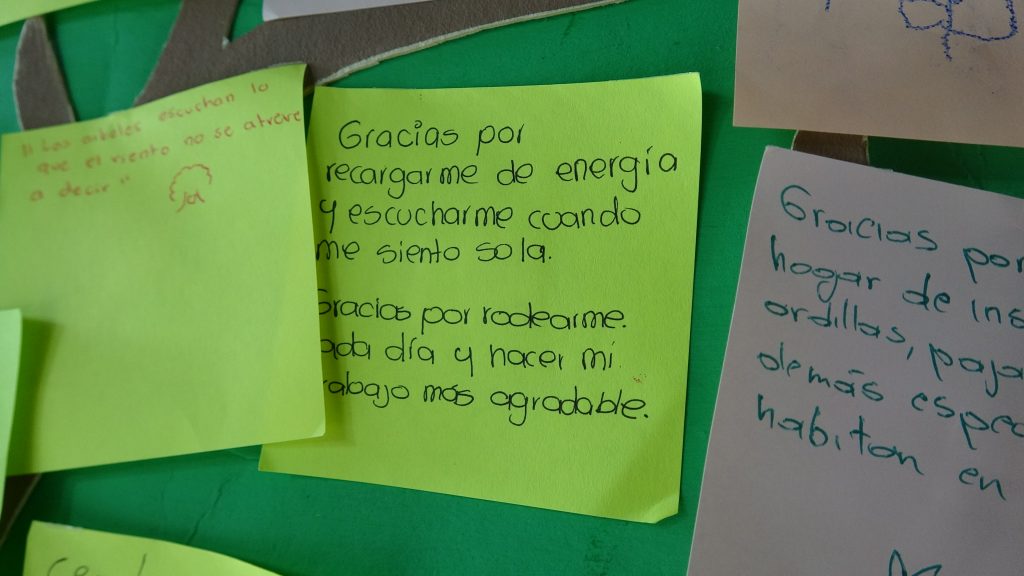 "Los arboles escuchan lo
que el viento no se atreve
a decir"
Gracias por
recargarme de energía
y escucharme cuando
me siento sola.
Gracias por rodearme.
ada día y hacer mi
rabajo más agradable.
Gracias por
hogar de ins
ardillas, paja
demás espec
habitan en